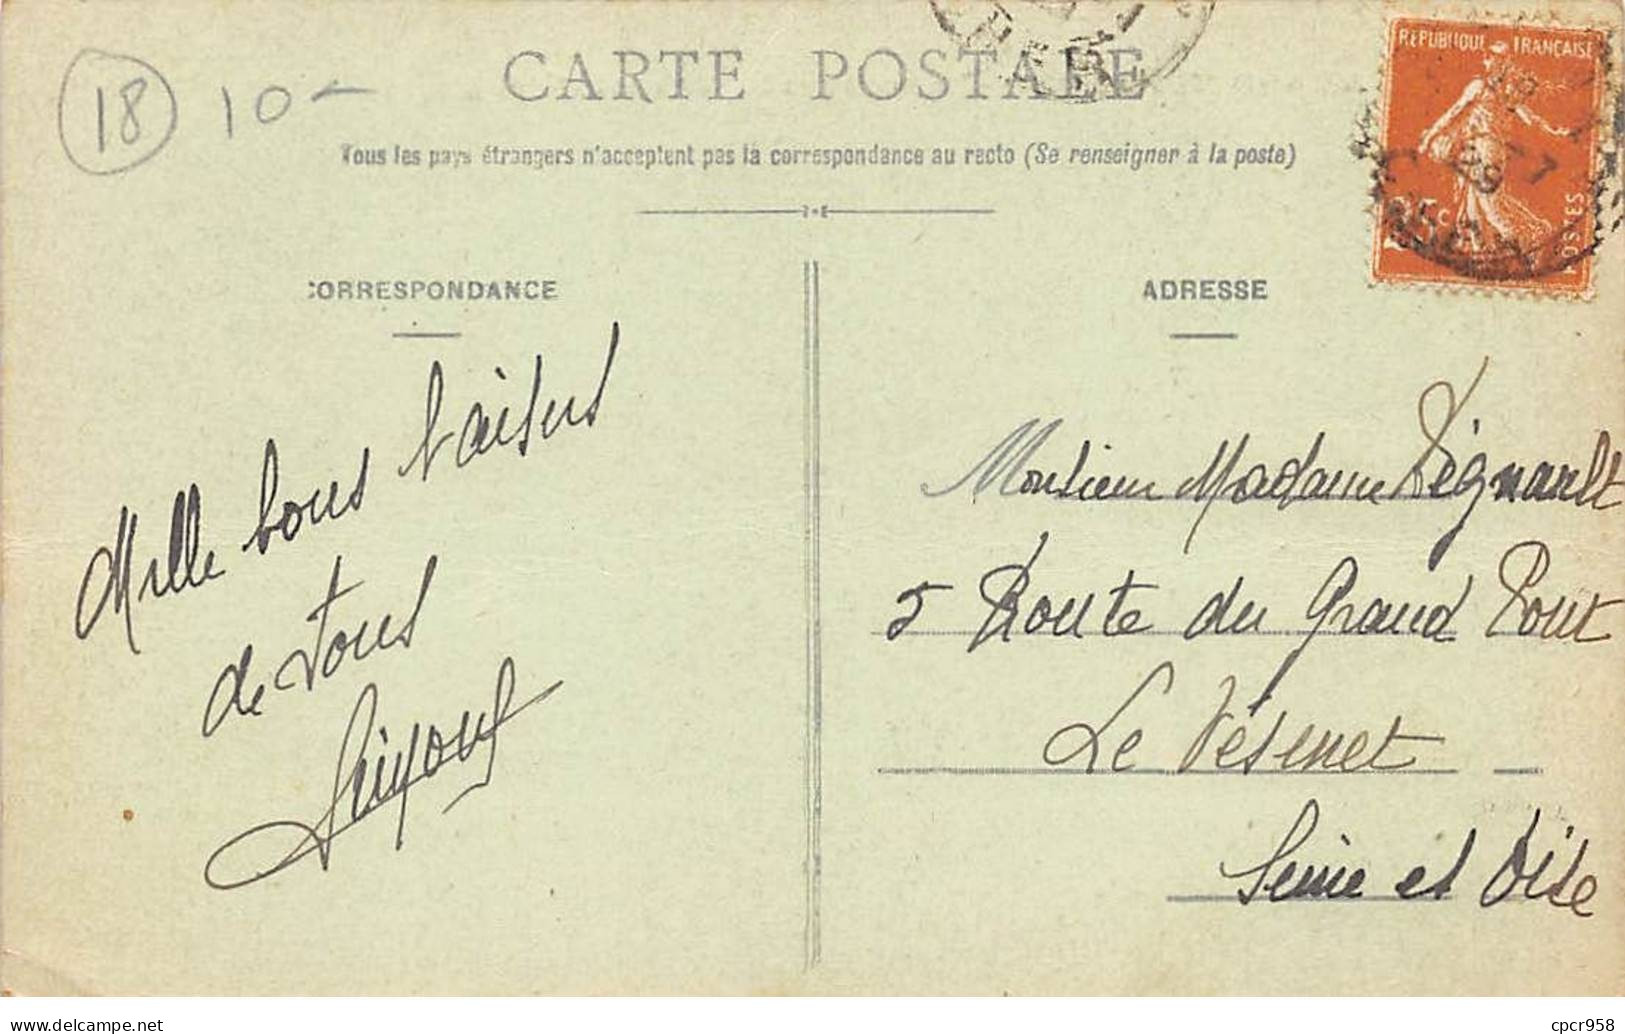 18 10-
CARTE POSTALE
Tous les pays étrangers n'acceptent pas la correspondance au recto (Se renseigner à la poste)
REPUBLIQUE FRANÇAISE
POSTES
CORRESPONDANCE
ADRESSE
Mille bons baisers
de tous
Monsieur Madame Régnault
5 Route du Grand Pont
Le Vésinet
Seine et Oise
cpcr958